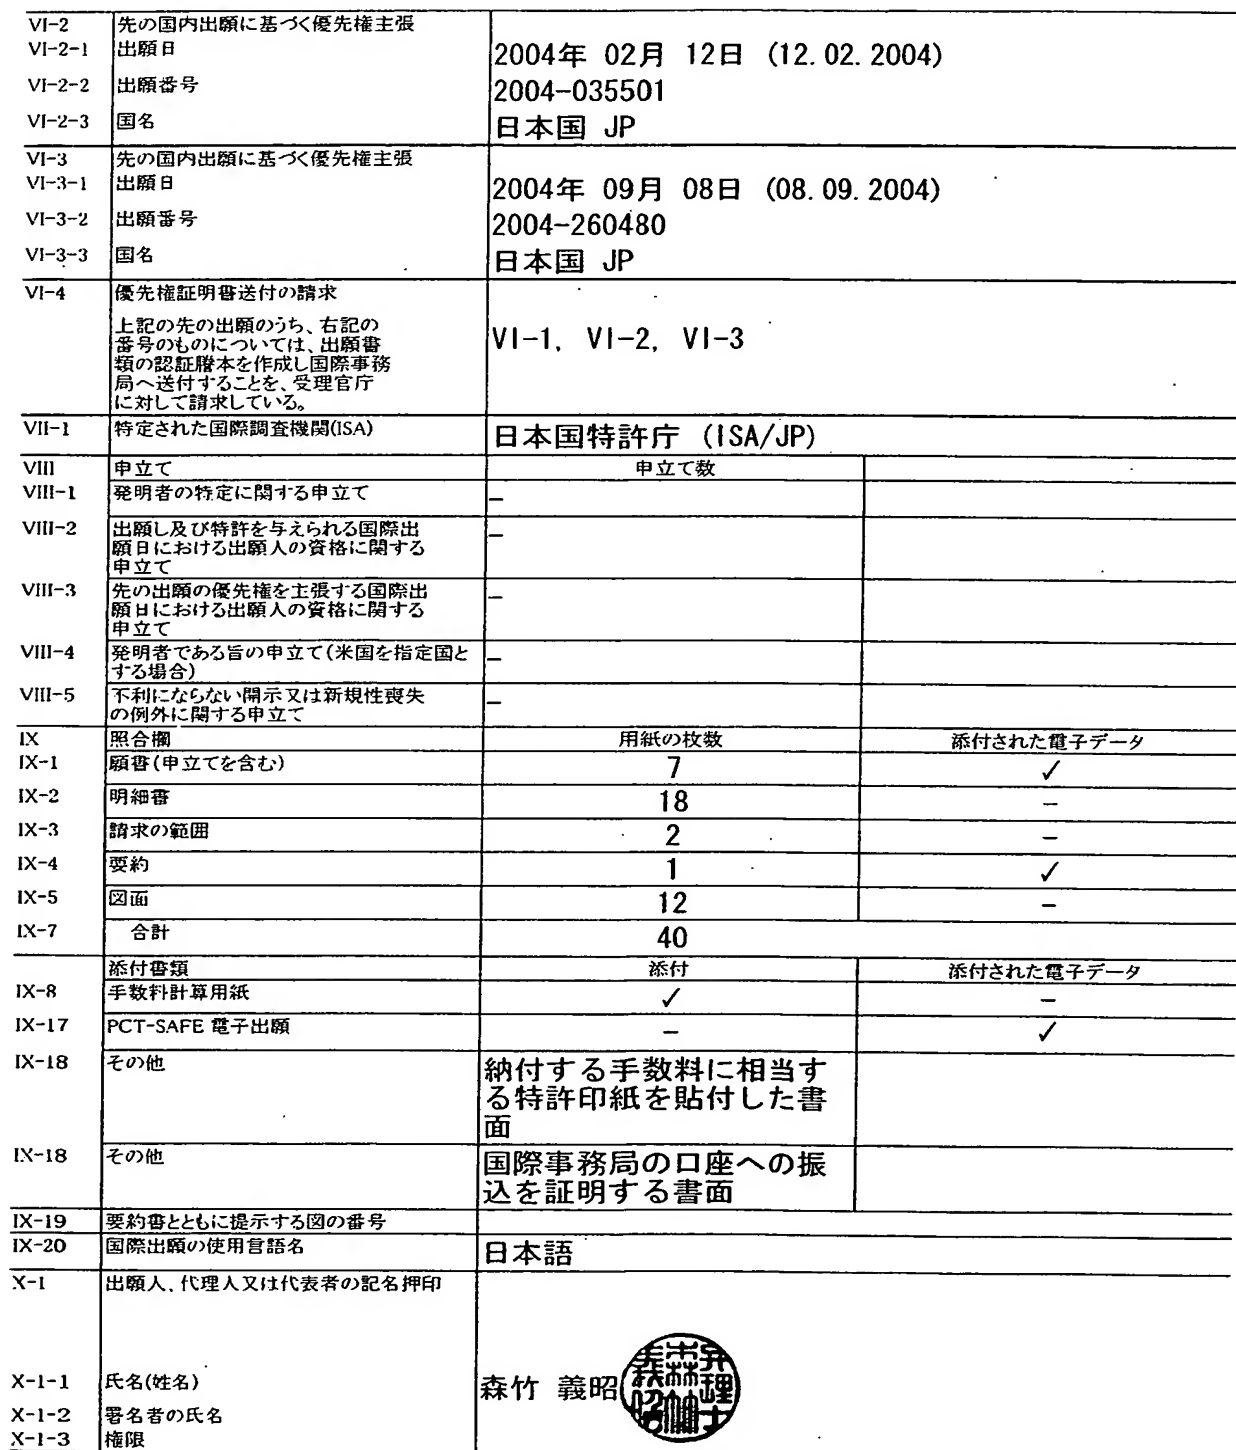 VI-2 先の国内出願に基づく優先権主張
VI-2-1 出願日 2004年 02月 12日 (12.02.2004)
VI-2-2 出願番号 2004-035501
VI-2-3 国名 日本国 JP
VI-3 先の国内出願に基づく優先権主張
VI-3-1 出願日 2004年 09月 08日 (08.09.2004)
VI-3-2 出願番号 2004-260480
VI-3-3 国名 日本国 JP
VI-4 優先権証明書送付の請求
上記の先の出願のうち、右記の
番号のものについては、出願書
類の認証謄本を作成し国際事務
局へ送付することを、受理官庁
に対して請求している。
VI-1, VI-2, VI-3
VII-1 特定された国際調査機関(ISA) 日本国特許庁 (ISA/JP)
VIII 申立て 申立て数
VIII-1 発明者の特定に関する申立て –
VIII-2 出願し及び特許を与えられる国際出
願日における出願人の資格に関する
申立て –
VIII-3 先の出願の優先権を主張する国際出
願日における出願人の資格に関する
申立て –
VIII-4 発明者である旨の申立て(米国を指定国と
する場合) –
VIII-5 不利にならない開示又は新規性喪失
の例外に関する申立て –
IX 照合欄 用紙の枚数 添付された電子データ
IX-1 願書(申立てを含む) 7 ✓
IX-2 明細書 18 –
IX-3 請求の範囲 2 –
IX-4 要約 1 ✓
IX-5 図面 12 –
IX-7 合計 40
添付書類 添付 添付された電子データ
IX-8 手数料計算用紙 ✓ –
IX-17 PCT-SAFE 電子出願 – ✓
IX-18 その他 納付する手数料に相当す
る特許印紙を貼付した書
面
IX-18 その他 国際事務局の口座への振
込を証明する書面
IX-19 要約書とともに提示する図の番号
IX-20 国際出願の使用言語名 日本語
X-1 出願人、代理人又は代表者の記名押印
X-1-1 氏名(姓名) 森竹 義昭
弁理士
森竹
義昭
X-1-2 署名者の氏名
X-1-3 権限